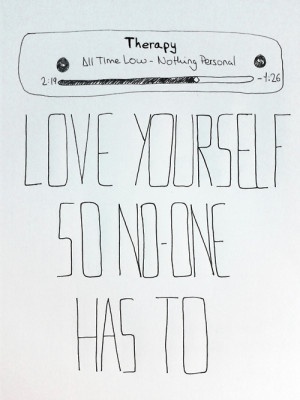 Therapy
All Time Low - Nothing Personal
2:19 -1:26
LOVE YOURSELF
SO NO-ONE
HAS TO